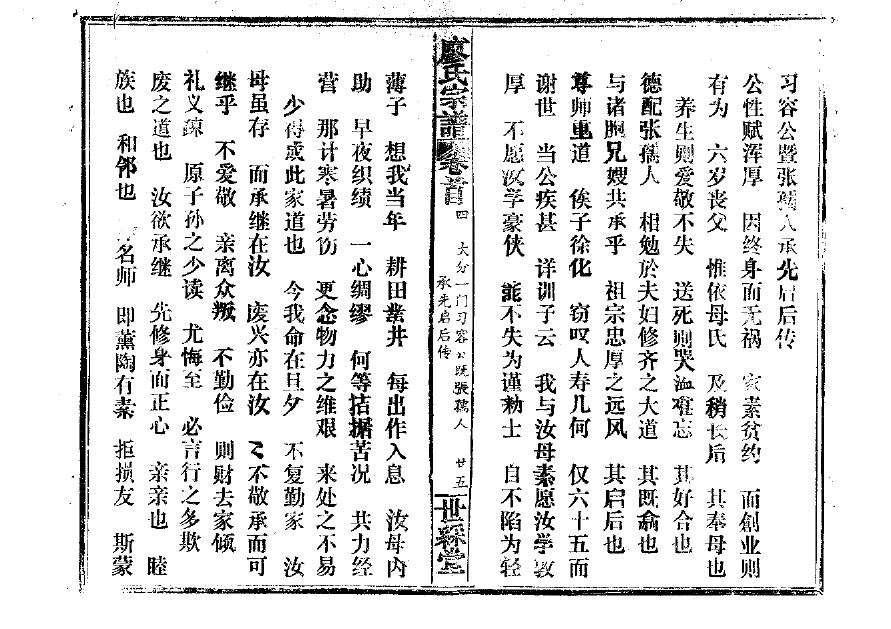 习容公暨张孺人承先启后传
公性赋浑厚　因终身而无祸　家素贫约　而創业则
有为　六岁丧父　惟依母氏　及稍长后　其奉母也
养生则爱敬不失　送死则哭泣难忘　其好合也
德配张孺人　相勉於夫妇修齐之大道　其既翕也
与诸胞兄嫂共承乎　祖宗忠厚之远风　其启后也
尊师重道　俟子徐化　窃叹人寿几何　仅六十五而
谢世　当公疾甚　详训子云　我与汝母素愿汝学敦
厚　不愿汝学豪侠　能不失为谨勑士　自不陷为轻
廖氏宗譜
卷首
四　大分一门习容公既張孺人
承先启后传
廿五
世綵堂
薄子　想我当年　耕田凿井　每出作入息　汝母内
助　早夜织绩　一心绸缪　何等拮据苦况　共力经
营　那计寒暑劳伤　更念物力之维艰　来处之不易
少得成此家道也　今我命在旦夕　不复勤家　汝
母虽存　而承继在汝　废兴亦在汝　汝不敬承而可
继乎　不爱敬　亲离众叛　不勤俭　则财去家倾
礼义疎　原子孙之少读　尤悔至　必言行之多欺
废之道也　汝欲承继　先修身而正心　亲亲也　睦
族也　和邻也　名师　即薰陶有素　拒损友　斯蒙